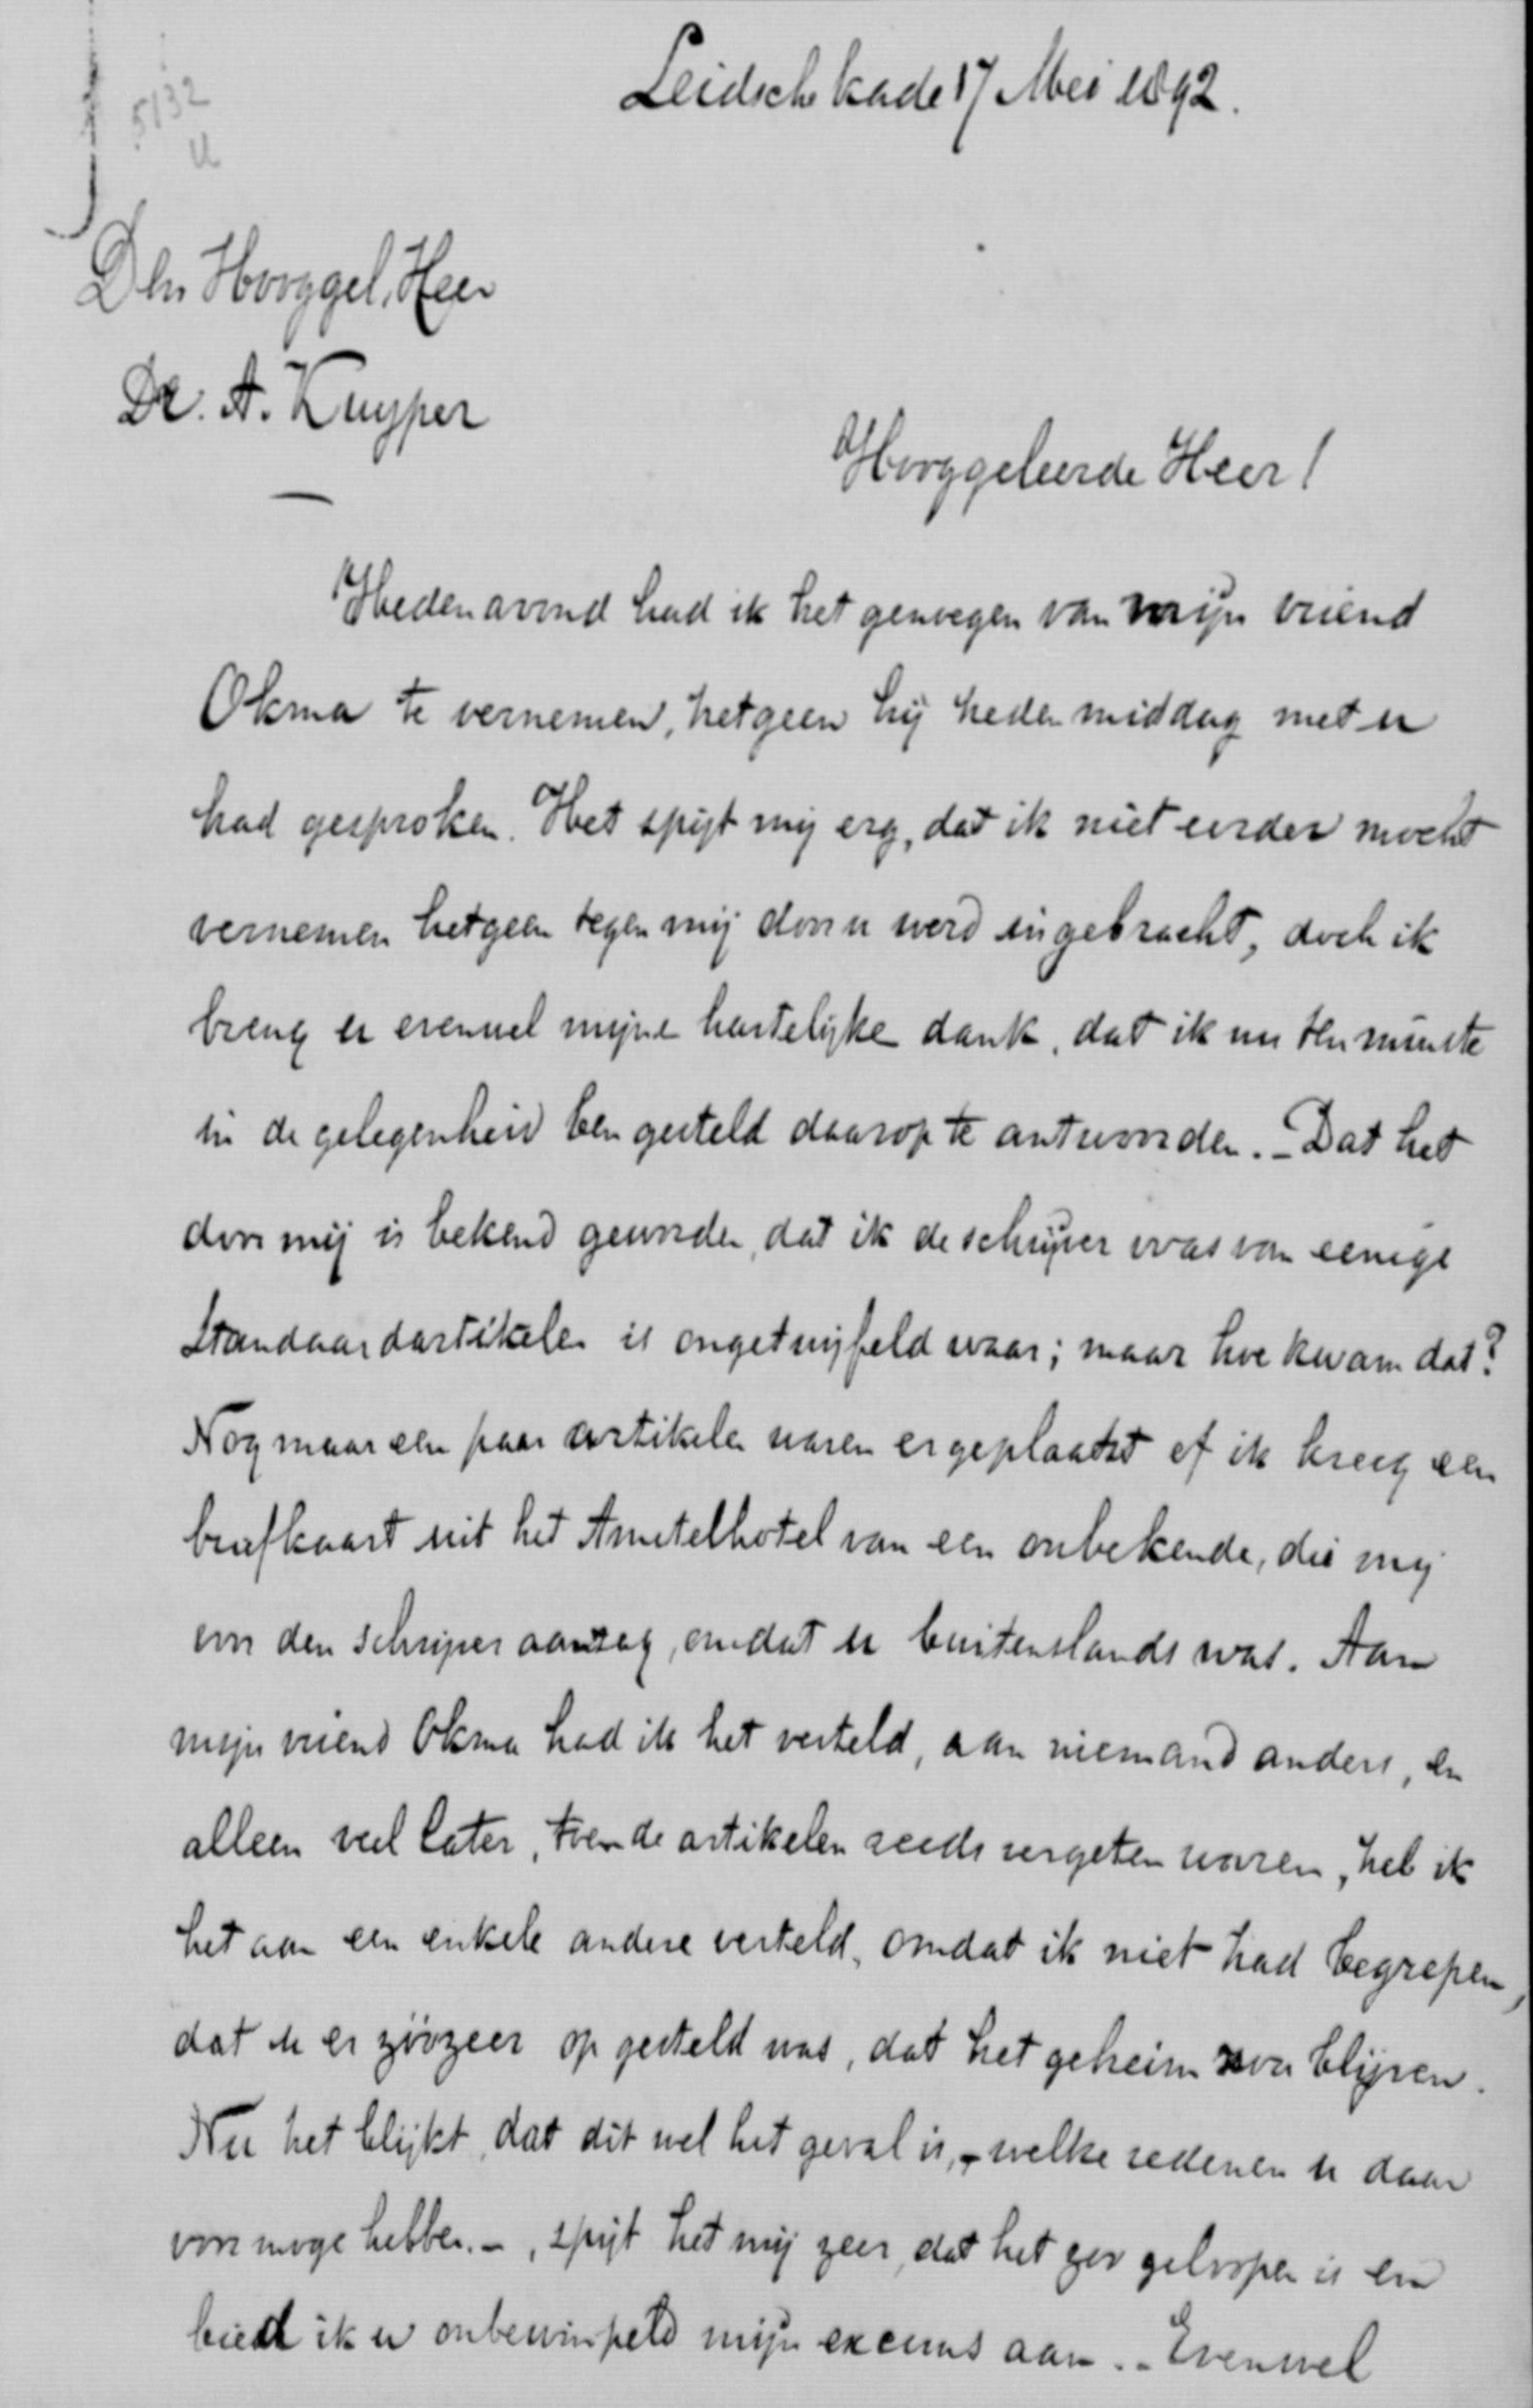 Leidsche kade 17 Mei 1892.
5132
U
Den Hooggel. Heer
Dr. A. Kuyper
Hooggeleerde Heer!
Hedenavond had ik het genoegen van mijn vriend
Okma te vernemen, hetgeen hij heden middag met u
had gesproken. Het spijt mij erg, dat ik niet eerder mocht
vernemen hetgeen tegen mij door u werd ingebracht, doch ik
breng u evenwel mijne hartelijke dank, dat ik nu ten minste
in de gelegenheid ben gesteld daarop te antwoorden. - Dat het
door mij is bekend geworden, dat ik de schrijver was van eenige
Standaardartikelen is ongetwijfeld waar; maar hoe kwam dat?
Nog maar een paar artikelen waren er geplaatst of ik kreeg een
briefkaart uit het Amstelhotel van een onbekende, die mij
voor den schrijver aanzag, omdat u buitenslands was. Aan
mijn vriend Okma had ik het verteld, aan niemand anders, en
alleen veel later, toen de artikelen reeds vergeten waren, heb ik
het aan een enkele andere verteld, omdat ik niet had begrepen,
dat u er zóózeer op gesteld was, dat het geheim zou blijven.
Nu het blijkt, dat dit wel het geval is, - welke redenen u daar
voor moge hebben. -, spijt het mij zeer, dat het zoo geloopen is en
bied ik u onbewimpeld mijn excuus aan. - Evenwel